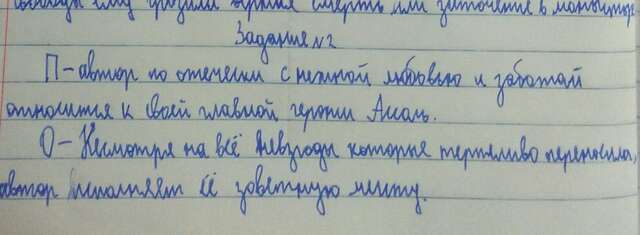 ему грозила верная смерть или заточение в монастыр
Задание №2
П – автор по отечески с нежной любовью и заботай
относится к своей главной герони Ассоль.
О – Несмотря на всё невзгоды которые терпеливо переносила,
автор исполняет её заветную мечту.